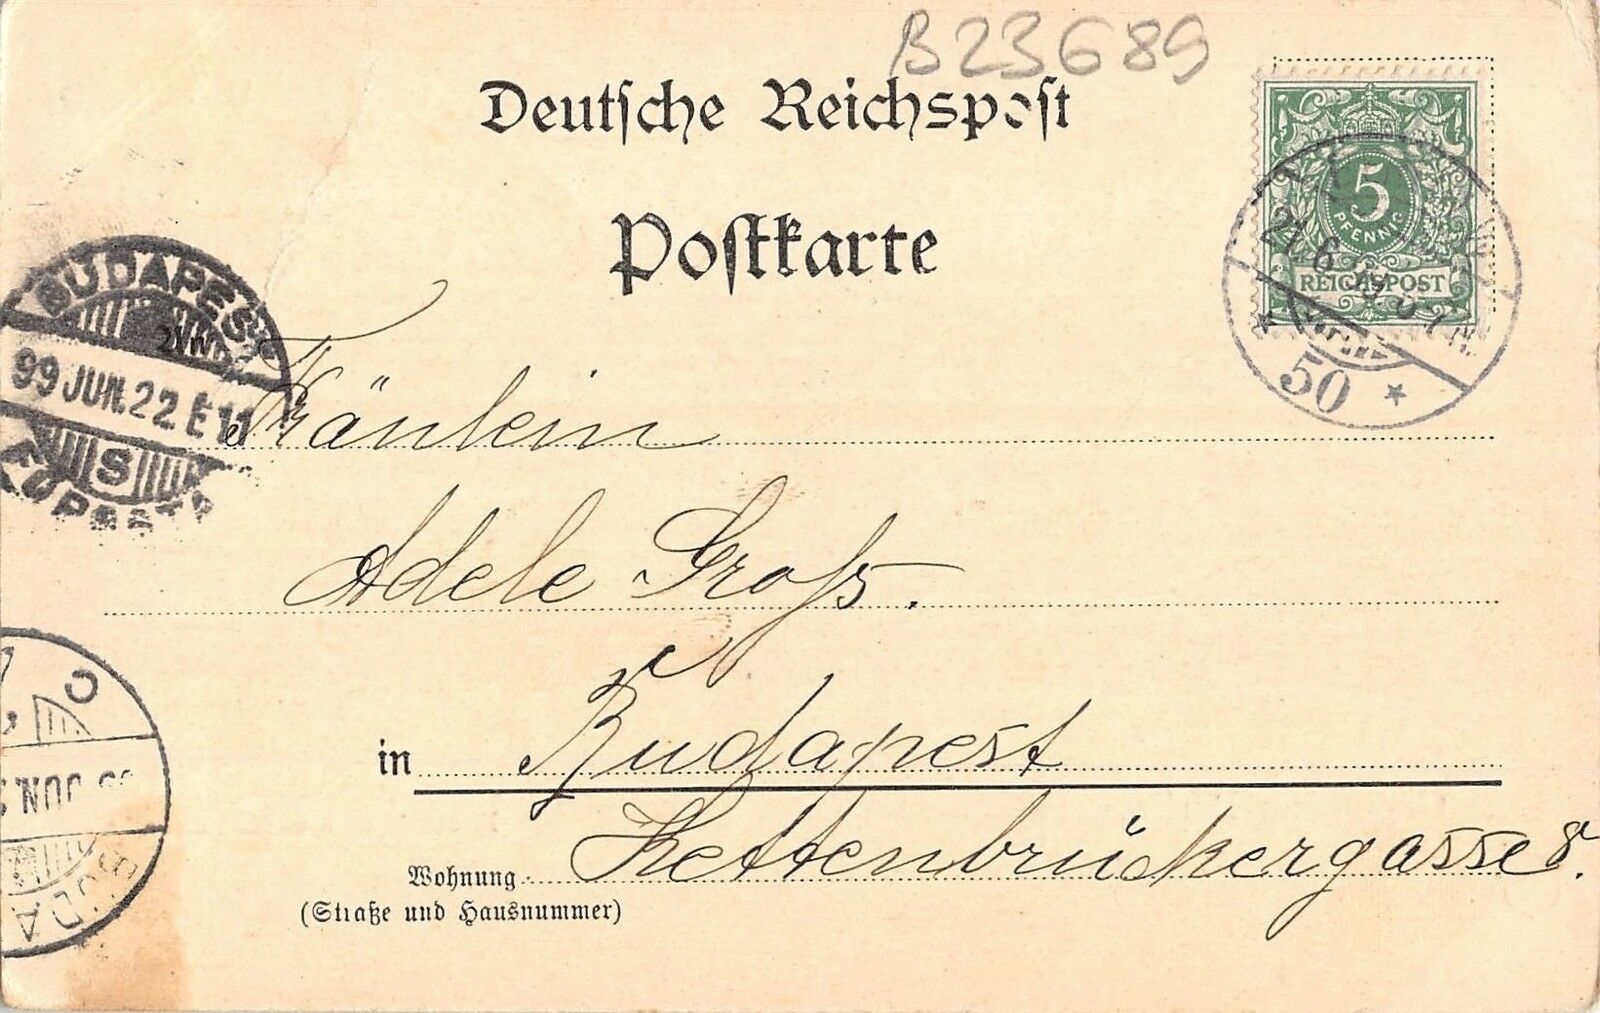 B23689
Deutsche Reichspost
Postkarte
5
PFENNIG
REICHSPOST
21 6
50
BUDAPEST
99 JUN. 22 E 11
S
Fräulein
Adele Groß.
in Budapest
Kettenbrückergasse 8.
Wohnung
(Straße und Hausnummer)
C
JUN.
BUDA